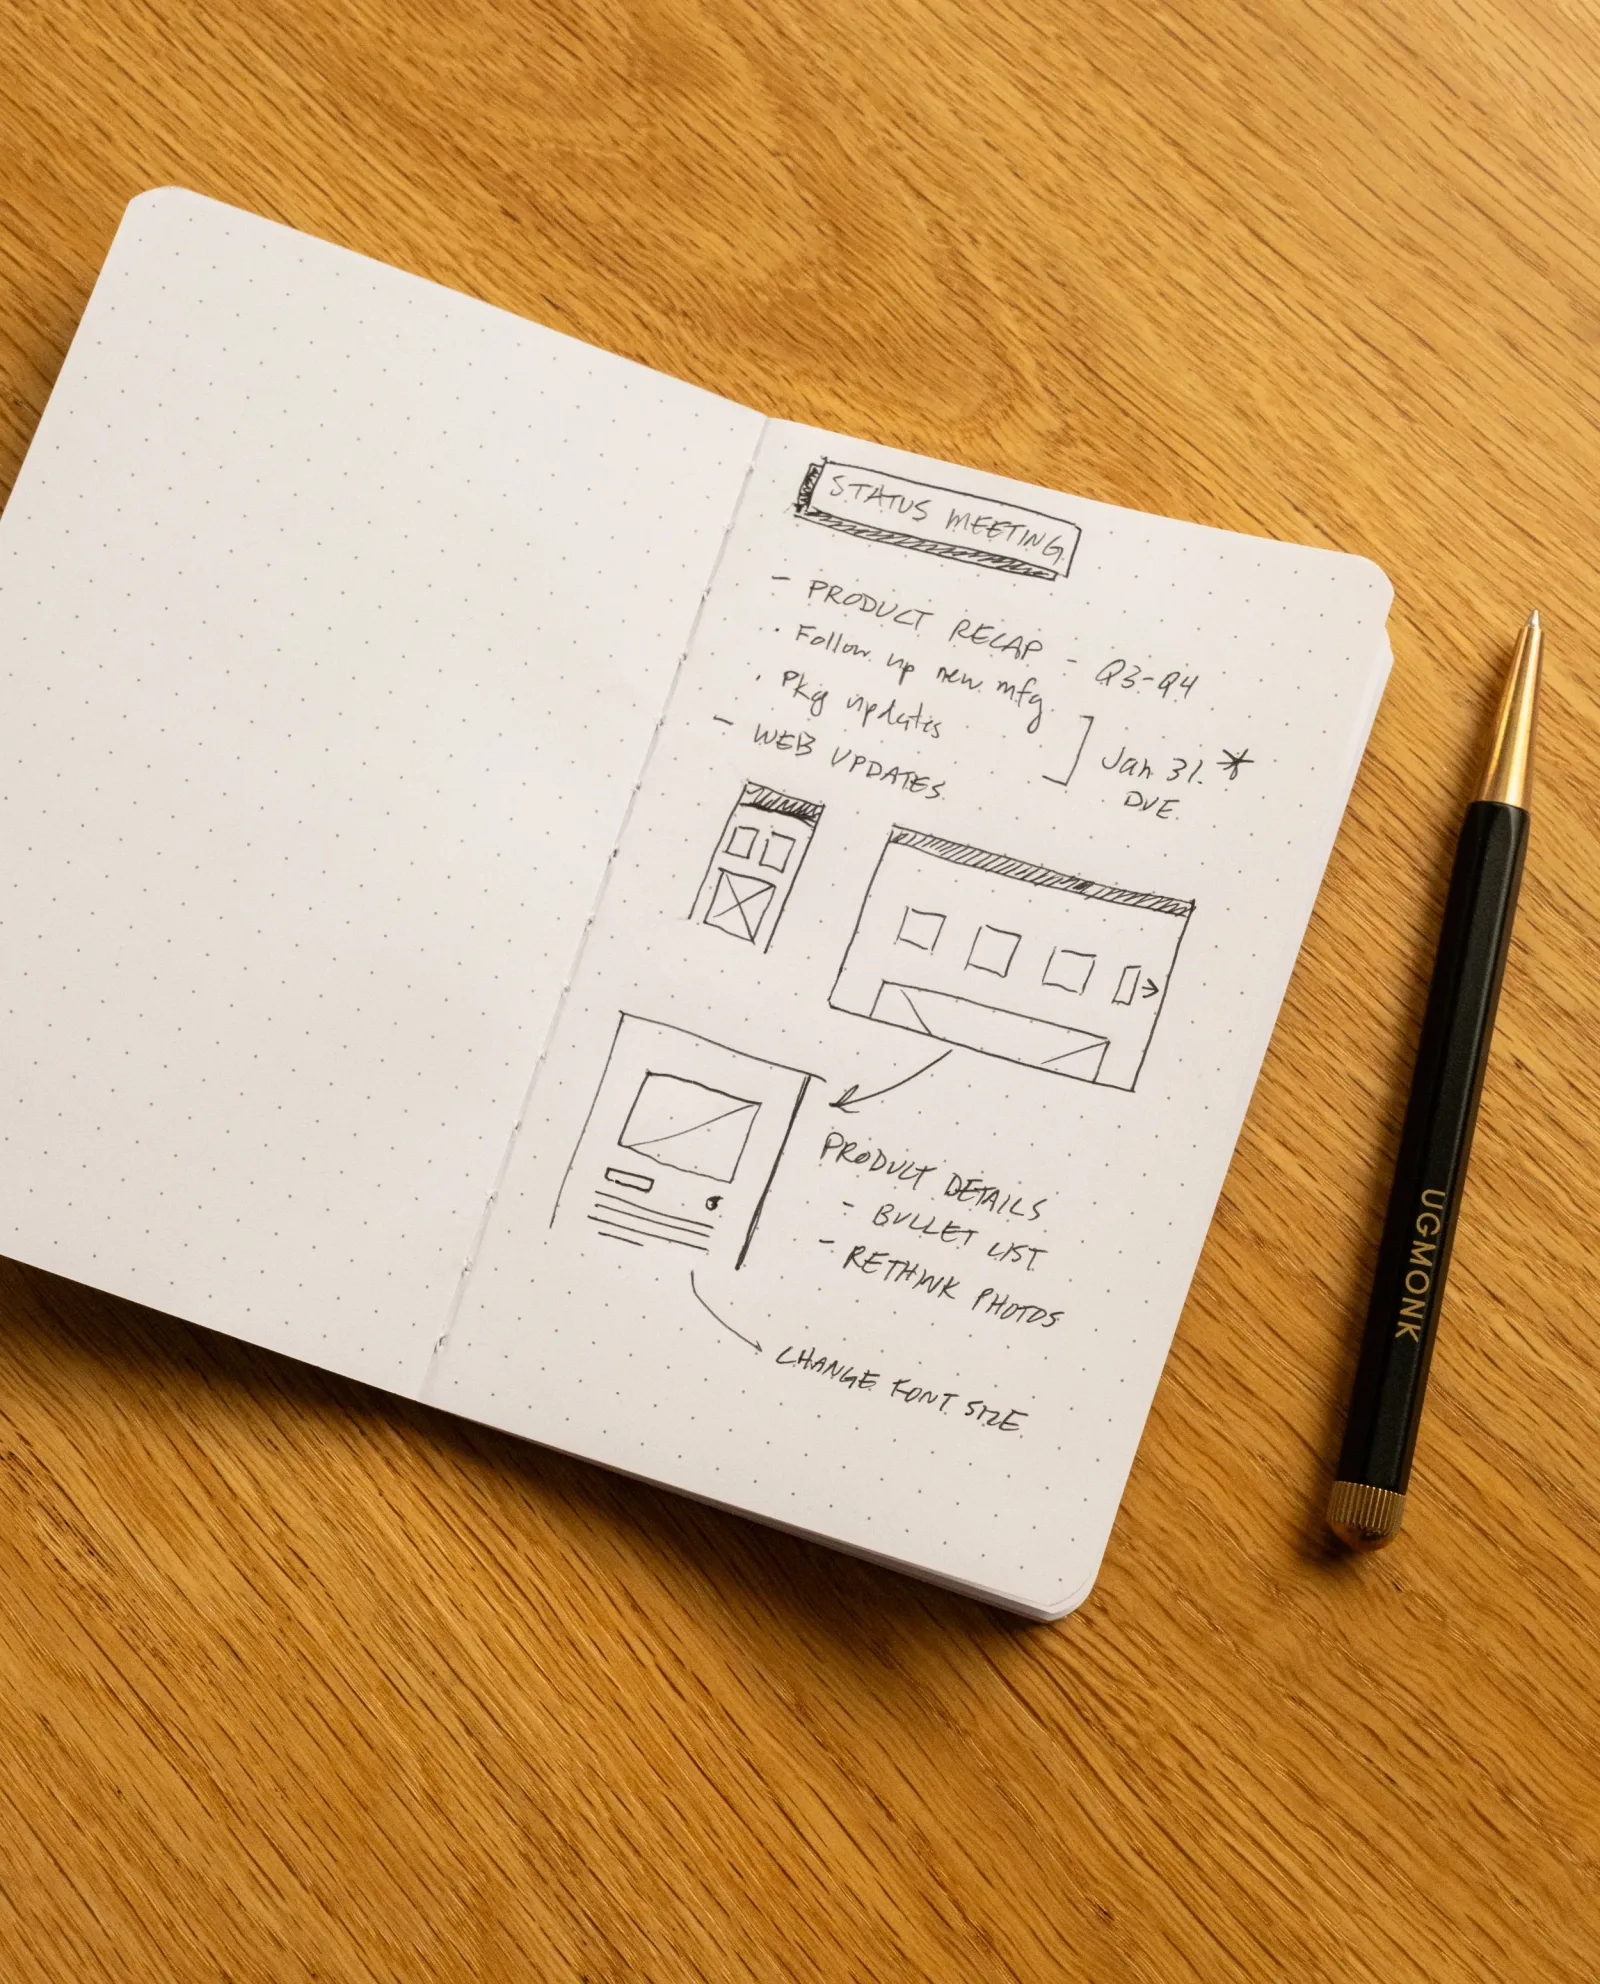 STATUS MEETING
- PRODUCT RECAP - Q3-Q4
· Follow up new mfg
· Pkg updates
- WEB UPDATES
Jan 31. *
DUE
PRODUCT DETAILS
- BULLET LIST
- RETHINK PHOTOS
CHANGE FONT SIZE
UGMONK